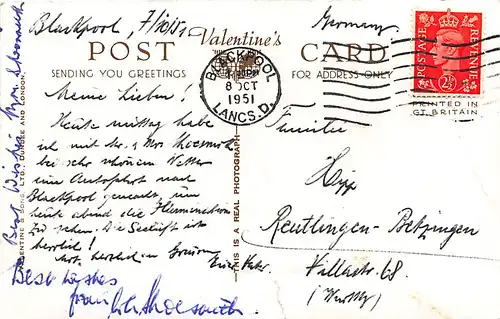 Blackpool, 7/10/51
Germany
Valentine's
POST CARD
SENDING YOU GREETINGS
FOR ADDRESS ONLY
BLACKPOOL
8 OCT
1951
LANCS.D.
POSTAGE REVENUE
2½D
PRINTED IN
GT. BRITAIN
Meine Lieben!
Heute mittag habe
ich mit Mr. & Mrs
bei sehr schönem Wetter
eine Autofahrt nach
Blackpool gemacht, um
heute abend die
zu sehen. Die Seeluft ist
herrlich!
Euer
Familie
Hipp
Reutlingen-Betzingen
68
Best wishes
from
Best Wishes Mrs
VALENTINE & SONS LTD. DUNDEE AND LONDON.
THIS IS A REAL PHOTOGRAPH